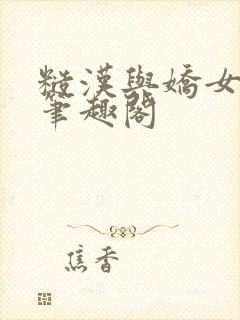 糙漢與嬌女
筆趣閣
焦香